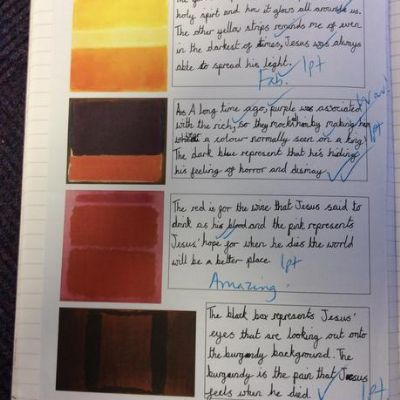 holy spirit and how it glows all around us.
The other yellow strips reminds me of even
in the darkest of times, Jesus was always
able to spread his leght.
Fab. 1pt
A long time ago, purple was associated
Wow!
with the rich, so they mock him by making him
a colour normally seen on a king.
1pt
The dark blue represent that he's hiding
his feeling of horror and dismay
The red is for the wine that Jesus said to
drink as his blood and the pink represents
Jesus' hope for when he dies the world
will be a better place. 1pt
Amazing.
The black box represents Jesus'
eyes that are looking out onto
the burgundy background. The
burgundy is the pain that Jesus
feels when he died. 1pt